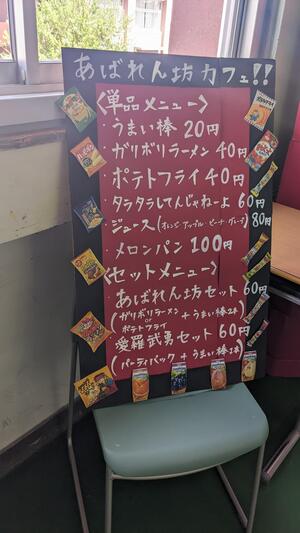 あばれん坊カフェ!!
<単品メニュー>
うまい棒 20円
・ガリボリラーメン 40円
・ポテトフライ 40円
・タラタラしてんじゃねーよ 60円
・ジュース(オレンジ・アップル・ピーチ・グレープ) 80円
・メロンパン 100円
<セットメニュー>
・あばれん坊セット 60円
(ガリボリラーメン or ポテトフライ + うまい棒2本)
愛羅武勇セット 60円
(パーティパック + うまい棒2本)